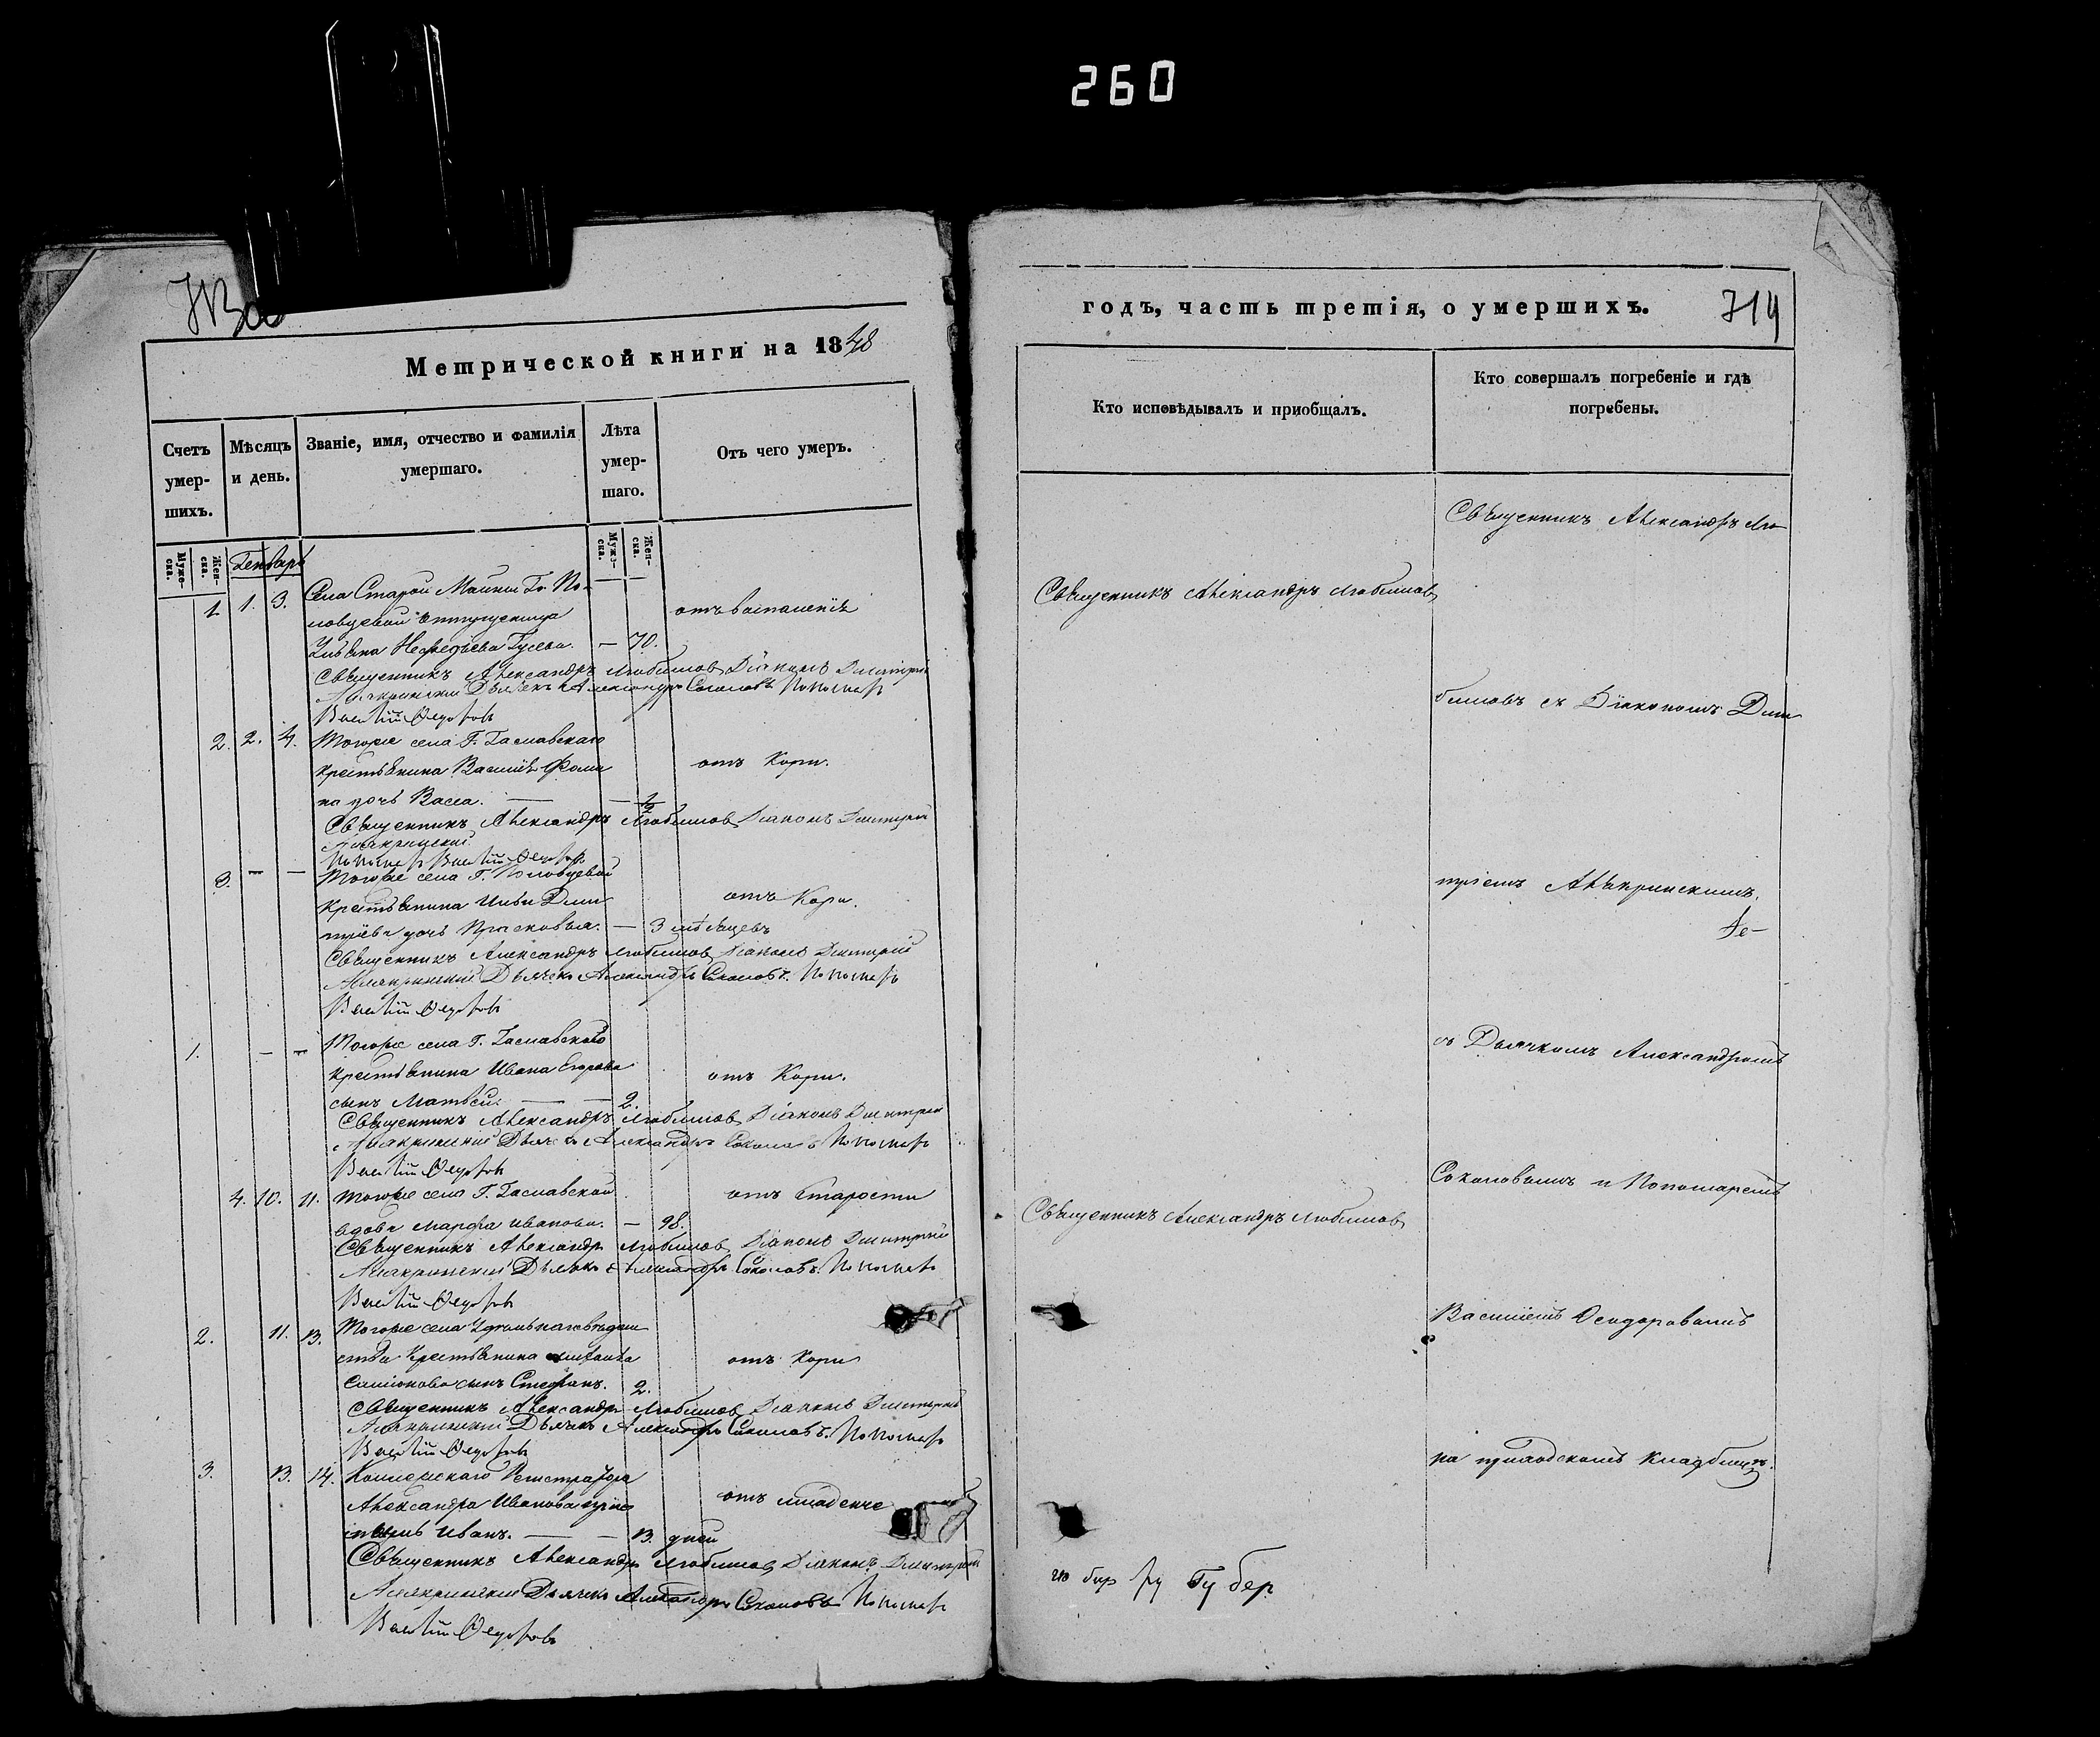 260
Метрической книги на 1848
Счетъ умершихъ.
Мѣсяцъ и день.
Званіе, имя, отчество и фамилія умершаго.
Лѣта умершаго.
Отъ чего умеръ.
Муже-ска.
Жен-ска.
Генварь
Муже-ска.
Жен-ска.
1. 1. 3. Села Старой Майны Гв. По-
ловцевой отпущеница отъ воспаленія
Гусева. — 70.
Священникъ Александръ Любимовъ Діаконъ Дмитрій
Дьячекъ Александръ Соколовъ Пономарь
Василій Ѳедоровъ
2. 2. 4. Тогоже села Г.
крестьянина Василія Фоми- отъ Кори.
на дочь Васса. — — 1/2
Священникъ Александръ Любимовъ Діаконъ Дмитрій
Пономарь Василій Ѳедоровъ
3. — — Тогоже села Г. Половцевой
Крестьянина Ильи Дми- отъ Кори.
тріева дочь Прасковья. — 3 мѣсяцевъ
Священникъ Александръ Любимовъ Діаконъ Дмитрій
Дьячекъ Александръ Соколовъ. Пономарь
Василій Ѳедоровъ
1. — — Тогоже села Г.
крестьянина Ивана Егорова отъ Кори.
сынъ Матвей. — — 2.
Священникъ Александръ Любимовъ Діаконъ Дмитрій
Дьячекъ Александръ Соколовъ Пономарь
Василій Ѳедоровъ
4. 10. 11. Тогоже села Г. отъ Старости
вдова Марфа Иванова. — 98.
Священникъ Александръ Любимовъ Діаконъ Дмитрій
Дьячекъ Александръ Соколовъ. Пономарь
Василій Ѳедоровъ
2. 11. 13. Тогоже села Удельнаго ведом-
ства Крестьянина отъ Кори
сынъ Стефанъ. 2.
Священникъ Александръ Любимовъ Діаконъ Дмитрій
Дьячекъ Александръ Соколовъ. Пономарь
Василій Ѳедоровъ
3. 13. 14. Коллежскаго Регистратора
Александра Иванова отъ младенче
Иванъ. — — 13. дней
Священникъ Александръ Любимовъ Діаконъ Дмитрій
Дьячекъ Александръ Соколовъ Пономарь
Василій Ѳедоровъ
годъ, часть третія, о умершихъ. 714
Кто исповѣдывалъ и приобщалъ.
Кто совершалъ погребеніе и гдѣ погребены.
Священникъ Александръ Лю-
Священникъ Александръ Любимовъ
бимовъ съ Діакономъ Дми-
тріемъ
съ Дьячкомъ Александромъ
Соколовымъ и Пономаремъ
Священникъ Александръ Любимовъ
Василіемъ Ѳеодоровымъ
на приходскомъ кладбищѣ.
Губер